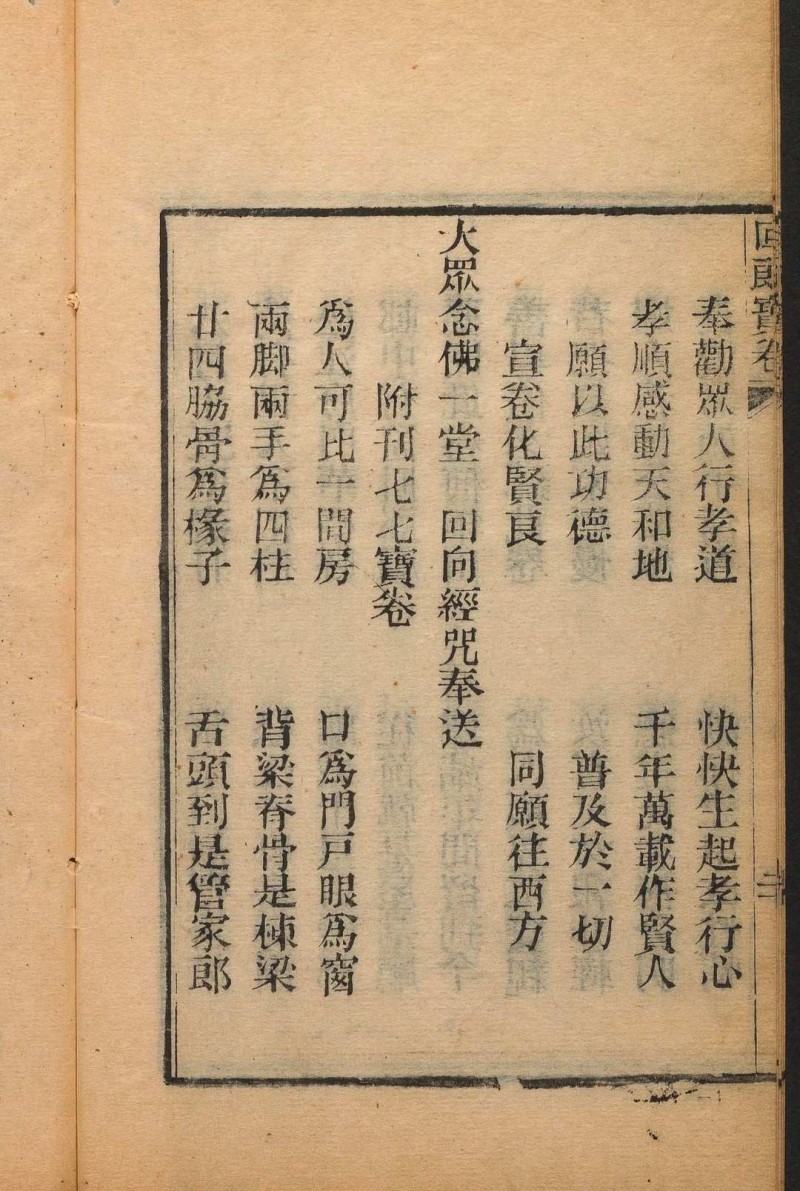 回郎寶卷
奉勸眾人行孝道　快快生起孝行心
孝順感動天和地　千年萬載作賢人
願以此功德　普及於一切
宣卷化賢良　同願往西方
大眾念佛一堂　回向經咒奉送
附刊七七寶卷
爲人可比一間房　口爲門戸眼爲窗
兩脚兩手爲四柱　背梁脊骨是棟梁
廿四脇骨爲椽子　舌頭到是管家郎